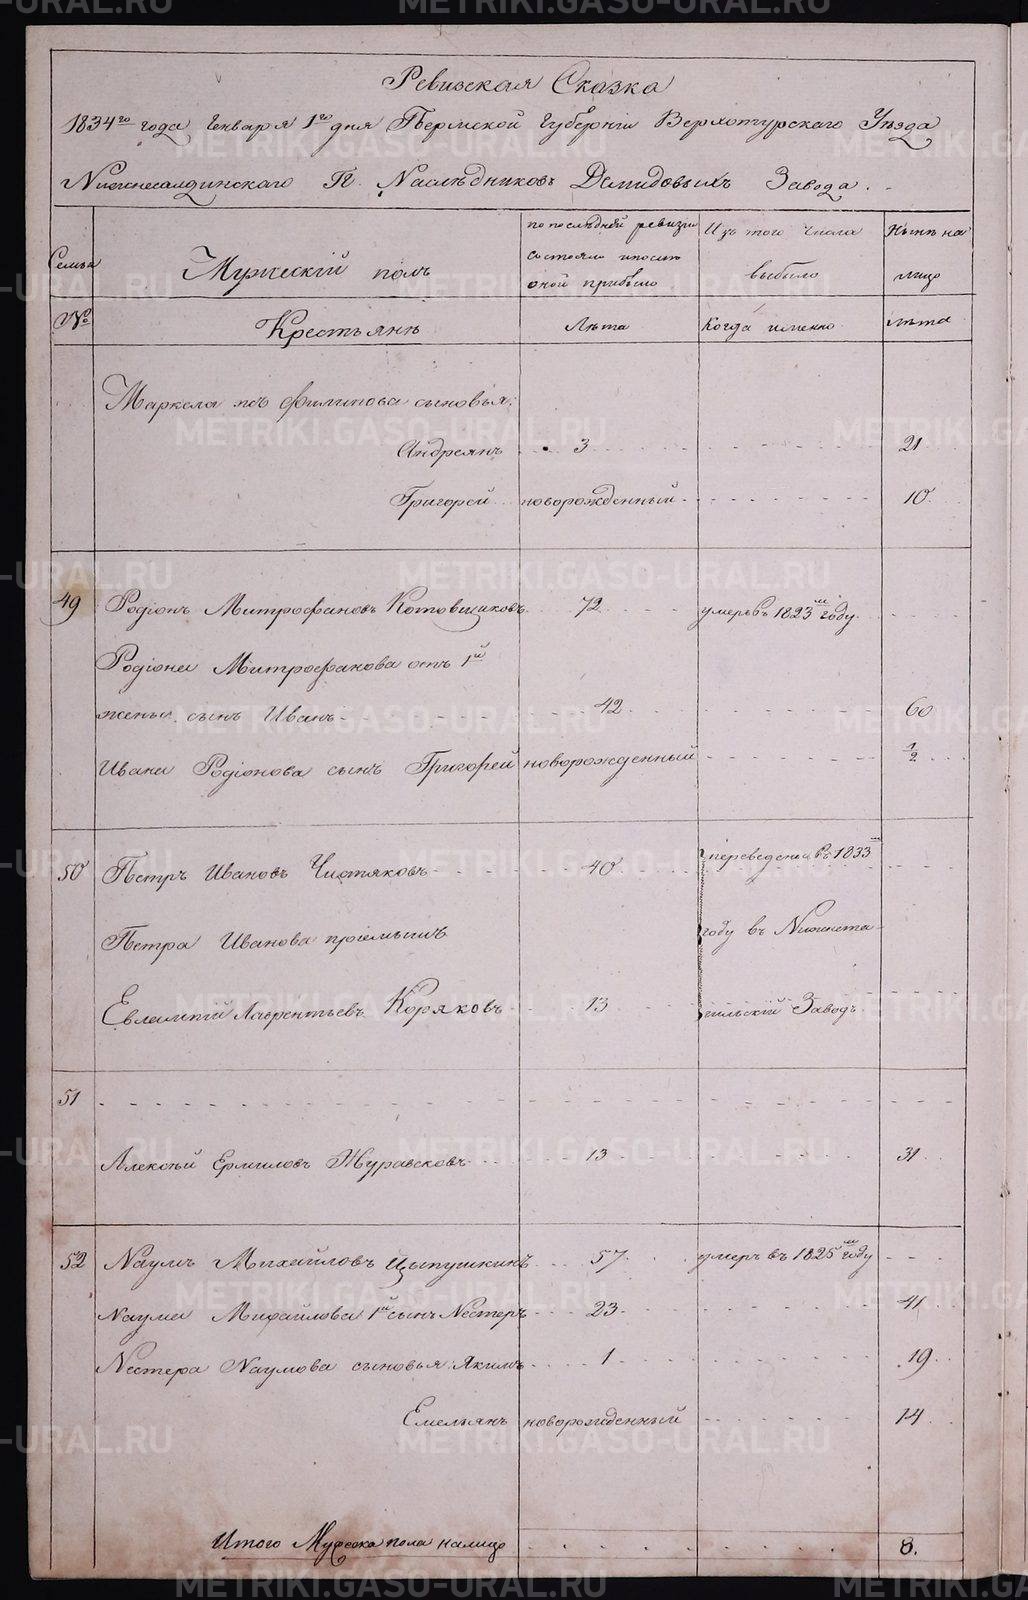 Ревизская Сказка
1834го года Генваря 1го дня Пермской Губернiи Верхотурскаго Уѣзда
Нижнесалдинскаго Г. Г. Наслѣдниковъ Демидовыхъ Завода.
Семьи
Мужескiй полъ
по послѣдней ревизiи
состояло и после
оной прибыло
Изъ того числа
выбыло
Нынѣ на
лицо
№
Крестьянѣ
Лѣта
Когда именно
лѣта
Маркела Филипова сыновья:
Андреянъ 3 21
Григорей новорожденный 10
49 Родiонъ Митрофановъ Котовщиковъ 72 умеръ въ 1823м году
Родiона Митрофанова отъ 1й
жены сынъ Иванъ 42 60
Ивана Родiонова сынъ Григорей новорожденный 1/2
50 Петръ Ивановъ Чистяковъ 40 переведены въ 1833м
Петра Иванова прiемышъ году въ Нижнета-
Евлампiй Лаврентьевъ Коряковъ 13 гильскiй Заводъ
51
Алексѣй Ермиловъ Журавсковъ 13 31
52 Наумъ Михайловъ Цыпушкинъ 57 умеръ въ 1825м году
Наума Михайлова 1й сынъ Нестеръ 23 41
Нестера Наумова сыновья: Якимъ 1 19
Емельянъ новорожденный 14
Итого Мужска пола налицо 8.
METRIKI.GASO-URAL.RU